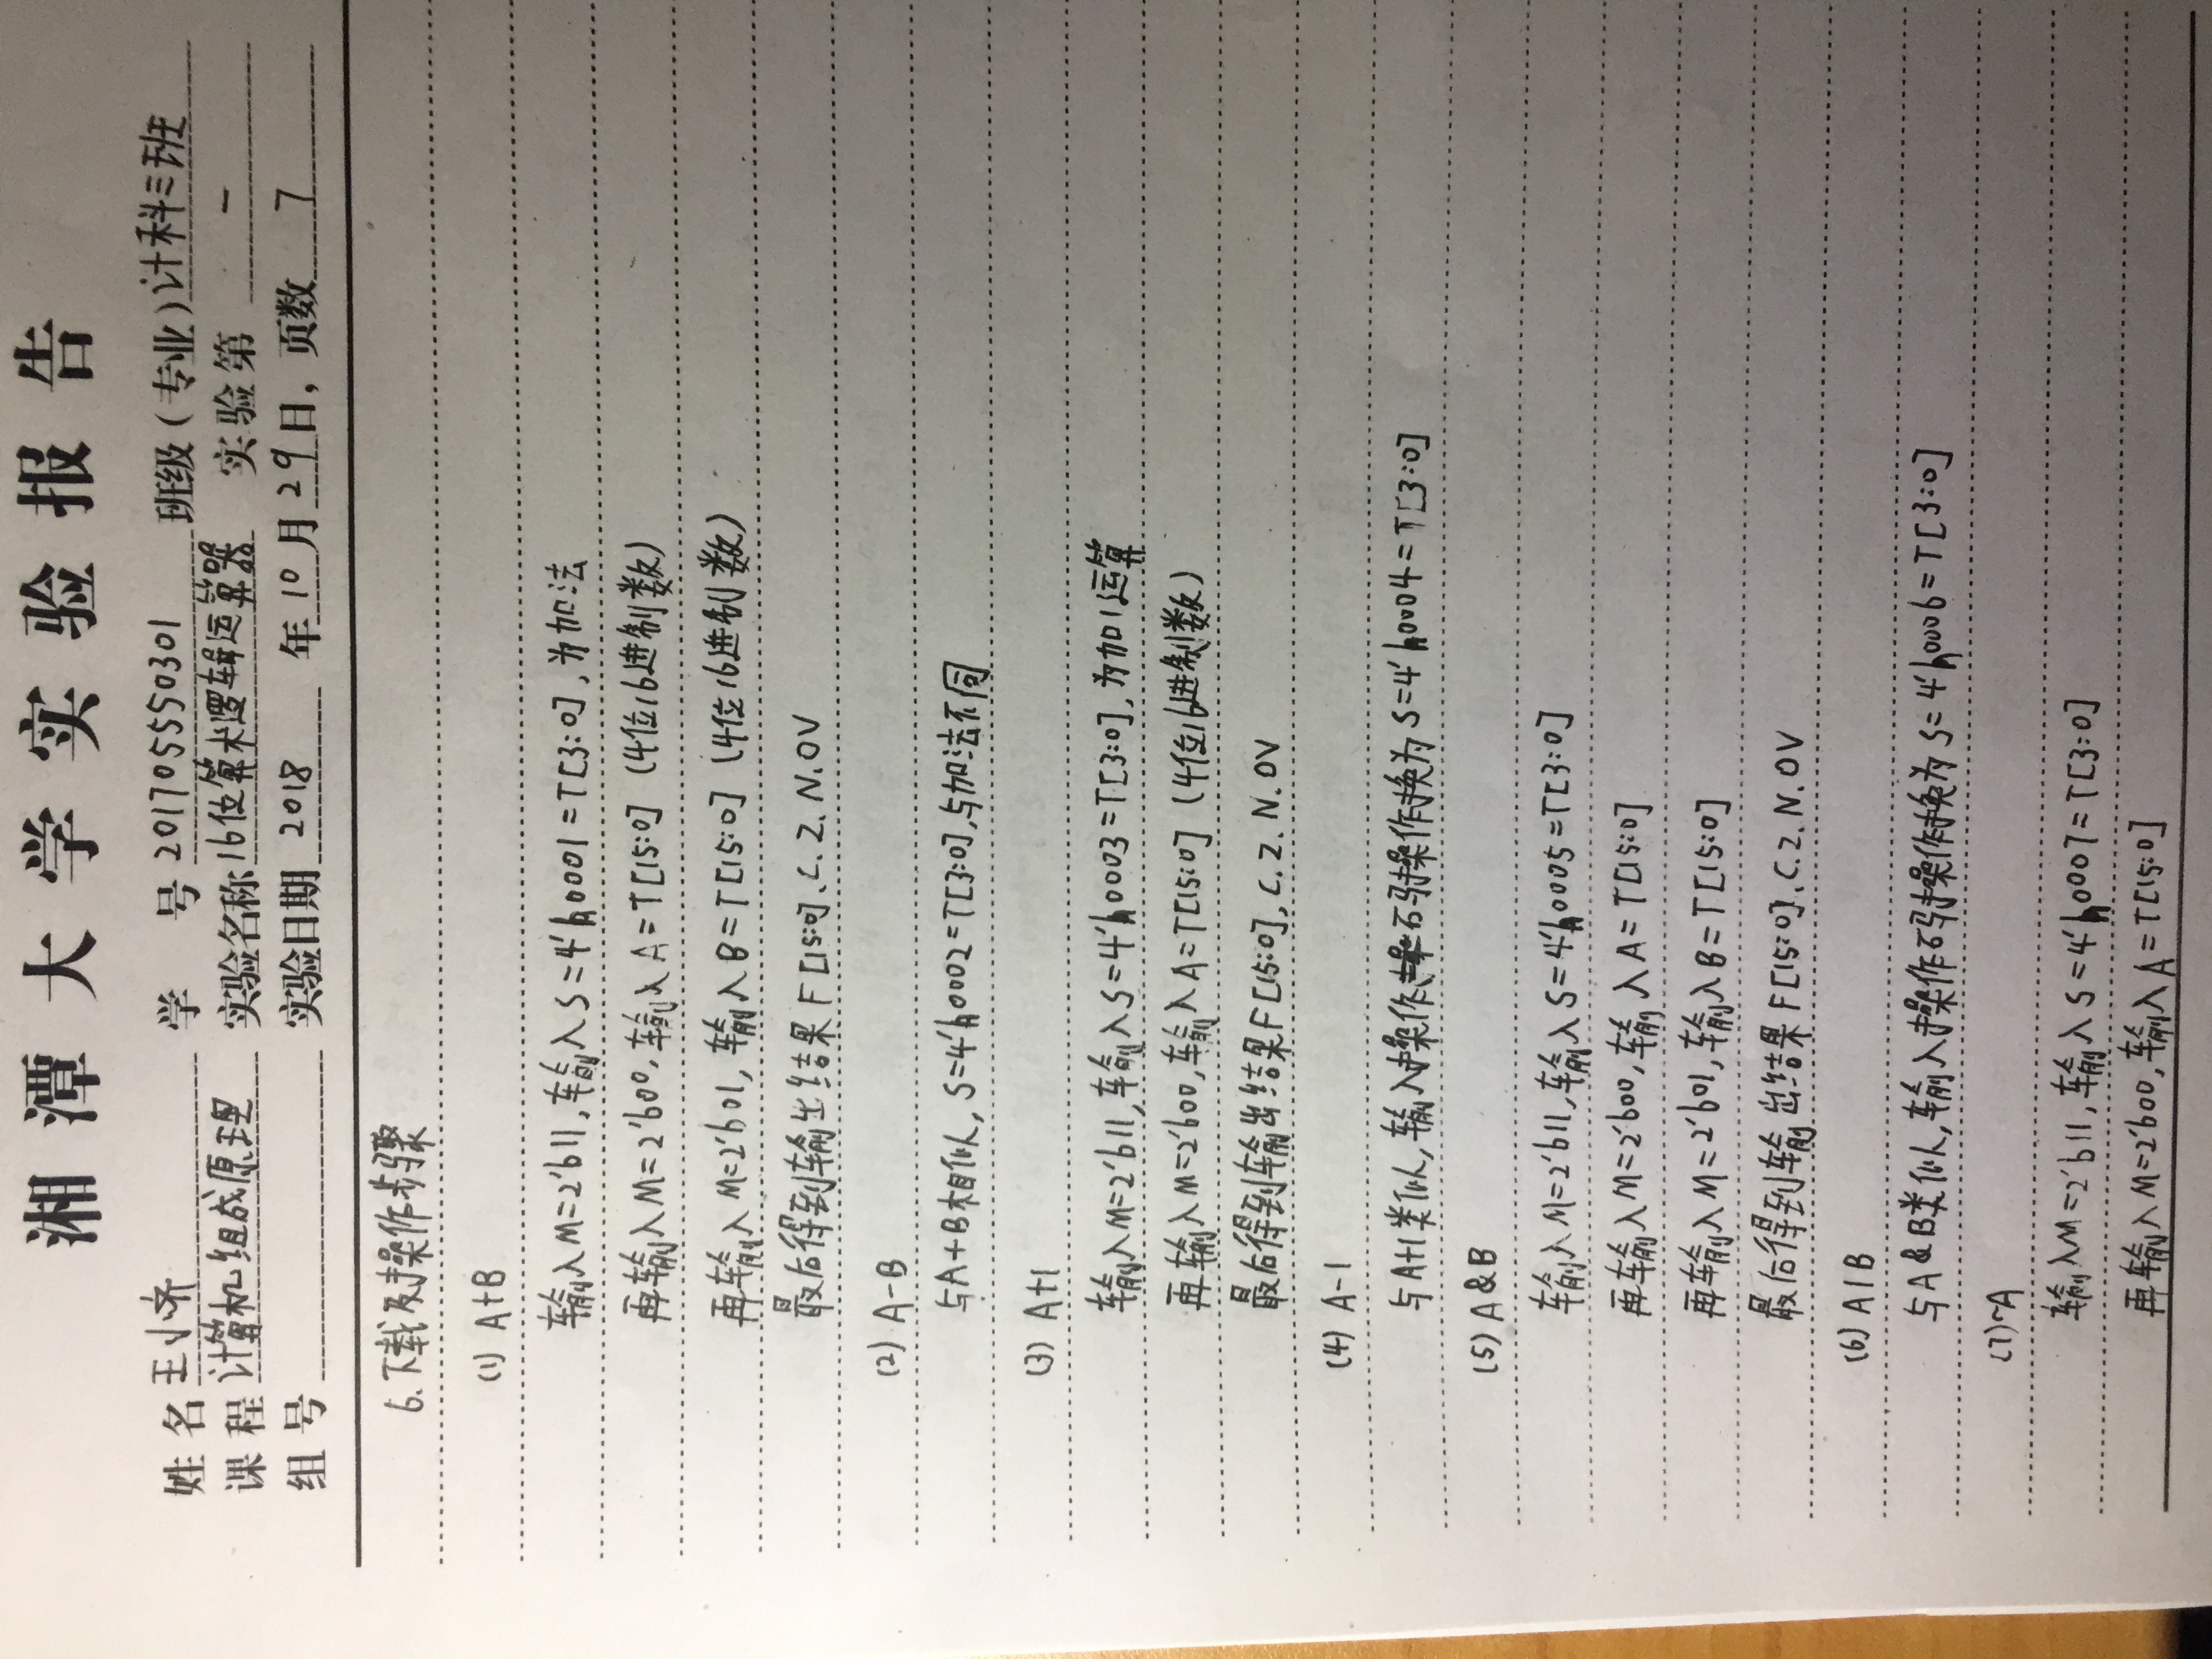 湘潭大学实验报告
姓名 王小济 学号 201705550301 班级(专业) 计科三班
课程 计算机组成原理 实验名称 16位算术逻辑运算器 实验第 一
组号 实验日期 2018 年 10 月 29 日, 页数 7
6. 下载及操作步骤
(1) A+B
输入M=2'b11, 输入S=4'h0001=T[3:0], 为加法
再输入M=2'b00, 输入A=T[15:0] (4位16进制数)
再输入M=2'b01, 输入B=T[15:0] (4位16进制数)
最后得到输出结果F[15:0]、C、Z、N、OV
(2) A-B
与A+B相似, S=4'h0002=T[3:0], 与加法不同
(3) A+1
输入M=2'b11, 输入S=4'h0003=T[3:0], 为加1运算
再输入M=2'b00, 输入A=T[15:0] (4位16进制数)
最后得到输出结果F[15:0], C、Z、N、OV
(4) A-1
与A+1类似, 输入操作码操作换为S=4'h0004=T[3:0]
(5) A&B
输入M=2'b11, 输入S=4'h0005=T[3:0]
再输入M=2'b00, 输入A=T[15:0]
再输入M=2'b01, 输入B=T[15:0]
最后得到输出结果F[15:0]、C、Z、N、OV
(6) A|B
与A&B类似, 输入操作码操作换为S=4'h0006=T[3:0]
(7) ~A
输入M=2'b11, 输入S=4'h0007=T[3:0]
再输入M=2'b00, 输入A=T[15:0]